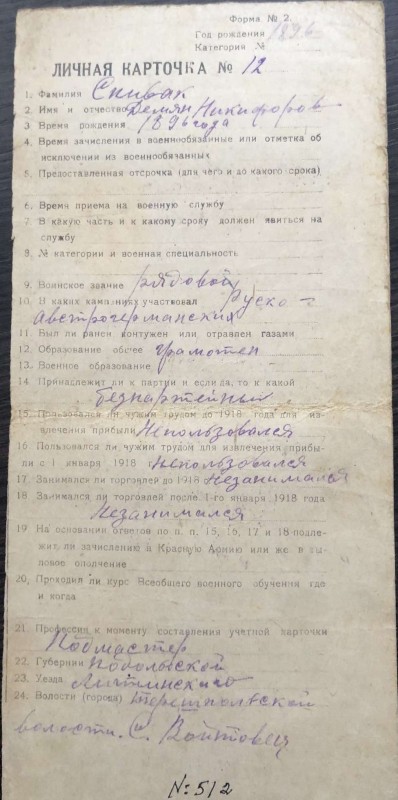 Форма № 2.
Год рождения 1896
Категории №
ЛИЧНАЯ КАРТОЧКА № 12
1. Фамилия Спивак
2. Имя и отчество Демян Никифоров
3 Время рождения 1896 года
4. Время зачисления в военнообязанные или отметка об
исключении из военнообязанных
5. Предоставленная отсрочка (для чего и до какого срока)
6. Время приема на военную службу
7. В какую часть и к какому сроку должен явиться на
службу
8. № категории и военная специальность
9. Воинское звание рядовой
10. В каких кампаниях участвовал Руско-
Австрогерманских
11. Был ли ранен контужен или отравлен газами
12. Образование общее грамотен
13. Военное образование
14 Принадлежит ли к партии и если да, то к какой
безпартейный
15. Пользовался ли чужим трудом до 1918 года для из-
влечения прибыли Непользовался
16 Пользовался ли чужим трудом для извлечения прибы-
ли с 1 января 1918 Непользовался
17. Занимался ли торговлей до 1918 Незанимался
18 Занимался ли торговлей после 1-го января 1918 года
Незанимался
19 На основании ответов по п. п. 15, 16, 17 и 18 подле-
жит ли зачислению в Красную Армию или же в ты-
ловое ополчение
20, Проходил ли курс Всеобщего военного обучения где
и когда
21. Профессия к моменту составления учетной карточки
22. Губернии Подольской
23. Уезда Литинского
24. Волости (города) Терешпольской
волости. С. Войтовец
№ 512